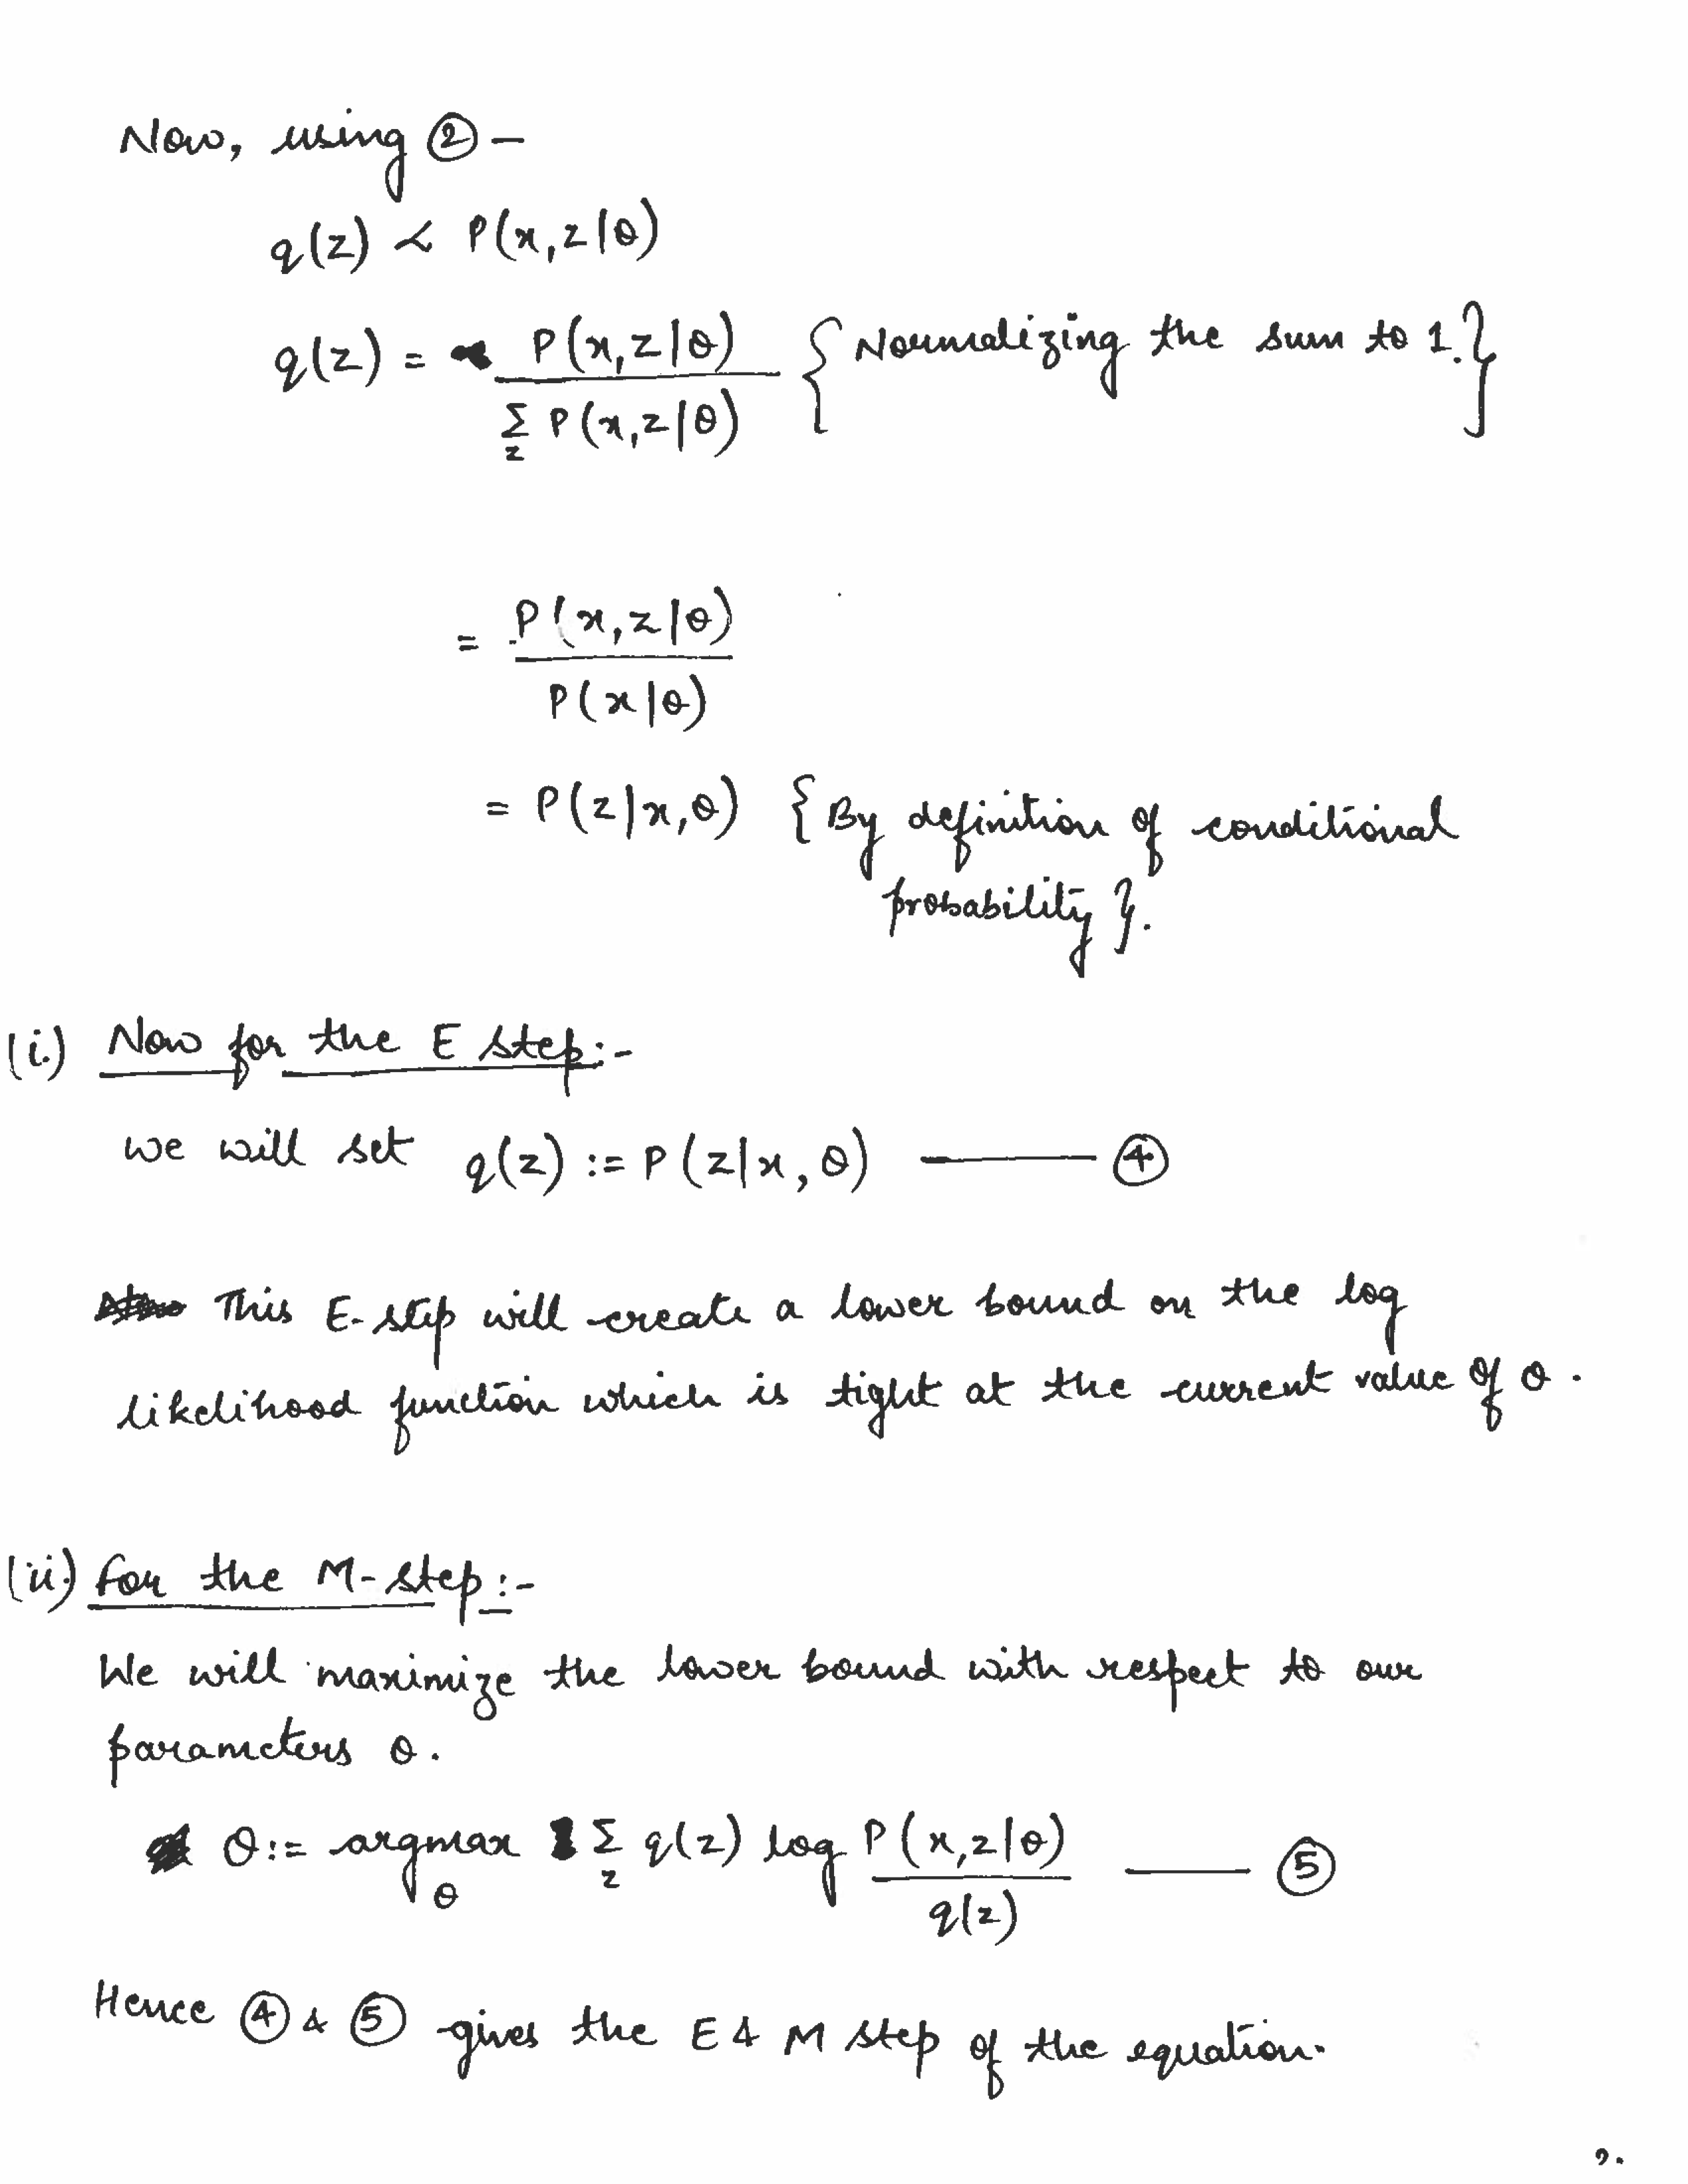 Now, using ② –
q(z) ∝ P(x,z|θ)
q(z) = P(x,z|θ) / Σ_z P(x,z|θ) {Normalizing the sum to 1.}
= P(x,z|θ) / P(x|θ)
= P(z|x,θ) {By definition of conditional
probability}.
(i.) Now for the E step:-
we will set q(z) := P(z|x,θ) —— ④
This E-step will create a lower bound on the log
likelihood function which is tight at the current value of θ.
(ii) For the M-step:-
We will maximize the lower bound with respect to our
parameters θ.
θ:= argmax_θ Σ_z q(z) log P(x,z|θ) / q(z) —— ⑤
Hence ④ & ⑤ gives the E & M step of the equation.